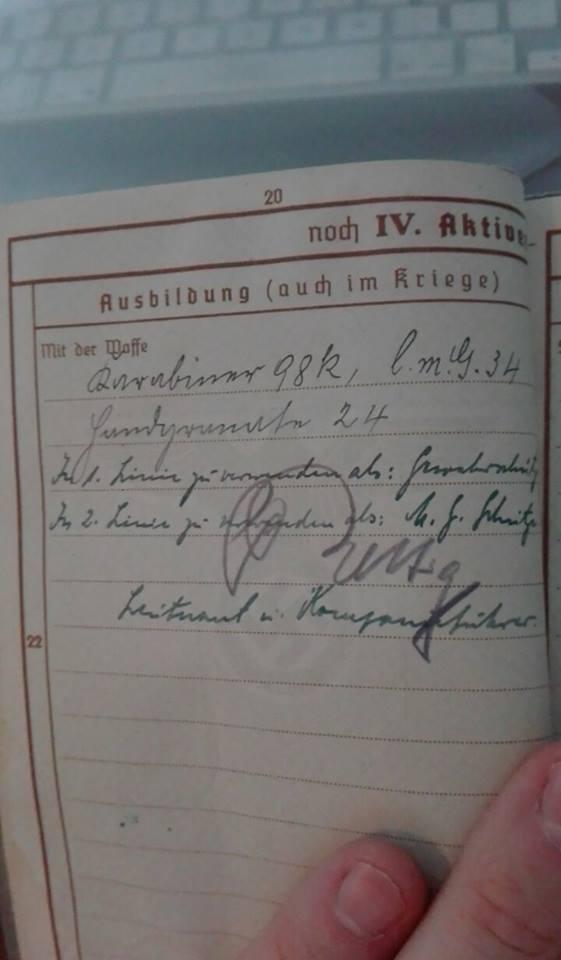 20
noch IV. Aktive
Ausbildung (auch im Kriege)
Mit der Waffe
Karabiner 98k, l.M.G. 34
Handgranate 24
In 1. Linie zu verwenden als:
In 2. Linie zu verwenden als: M. G. Schütze
Leutnant u. Kompanieführer.
22